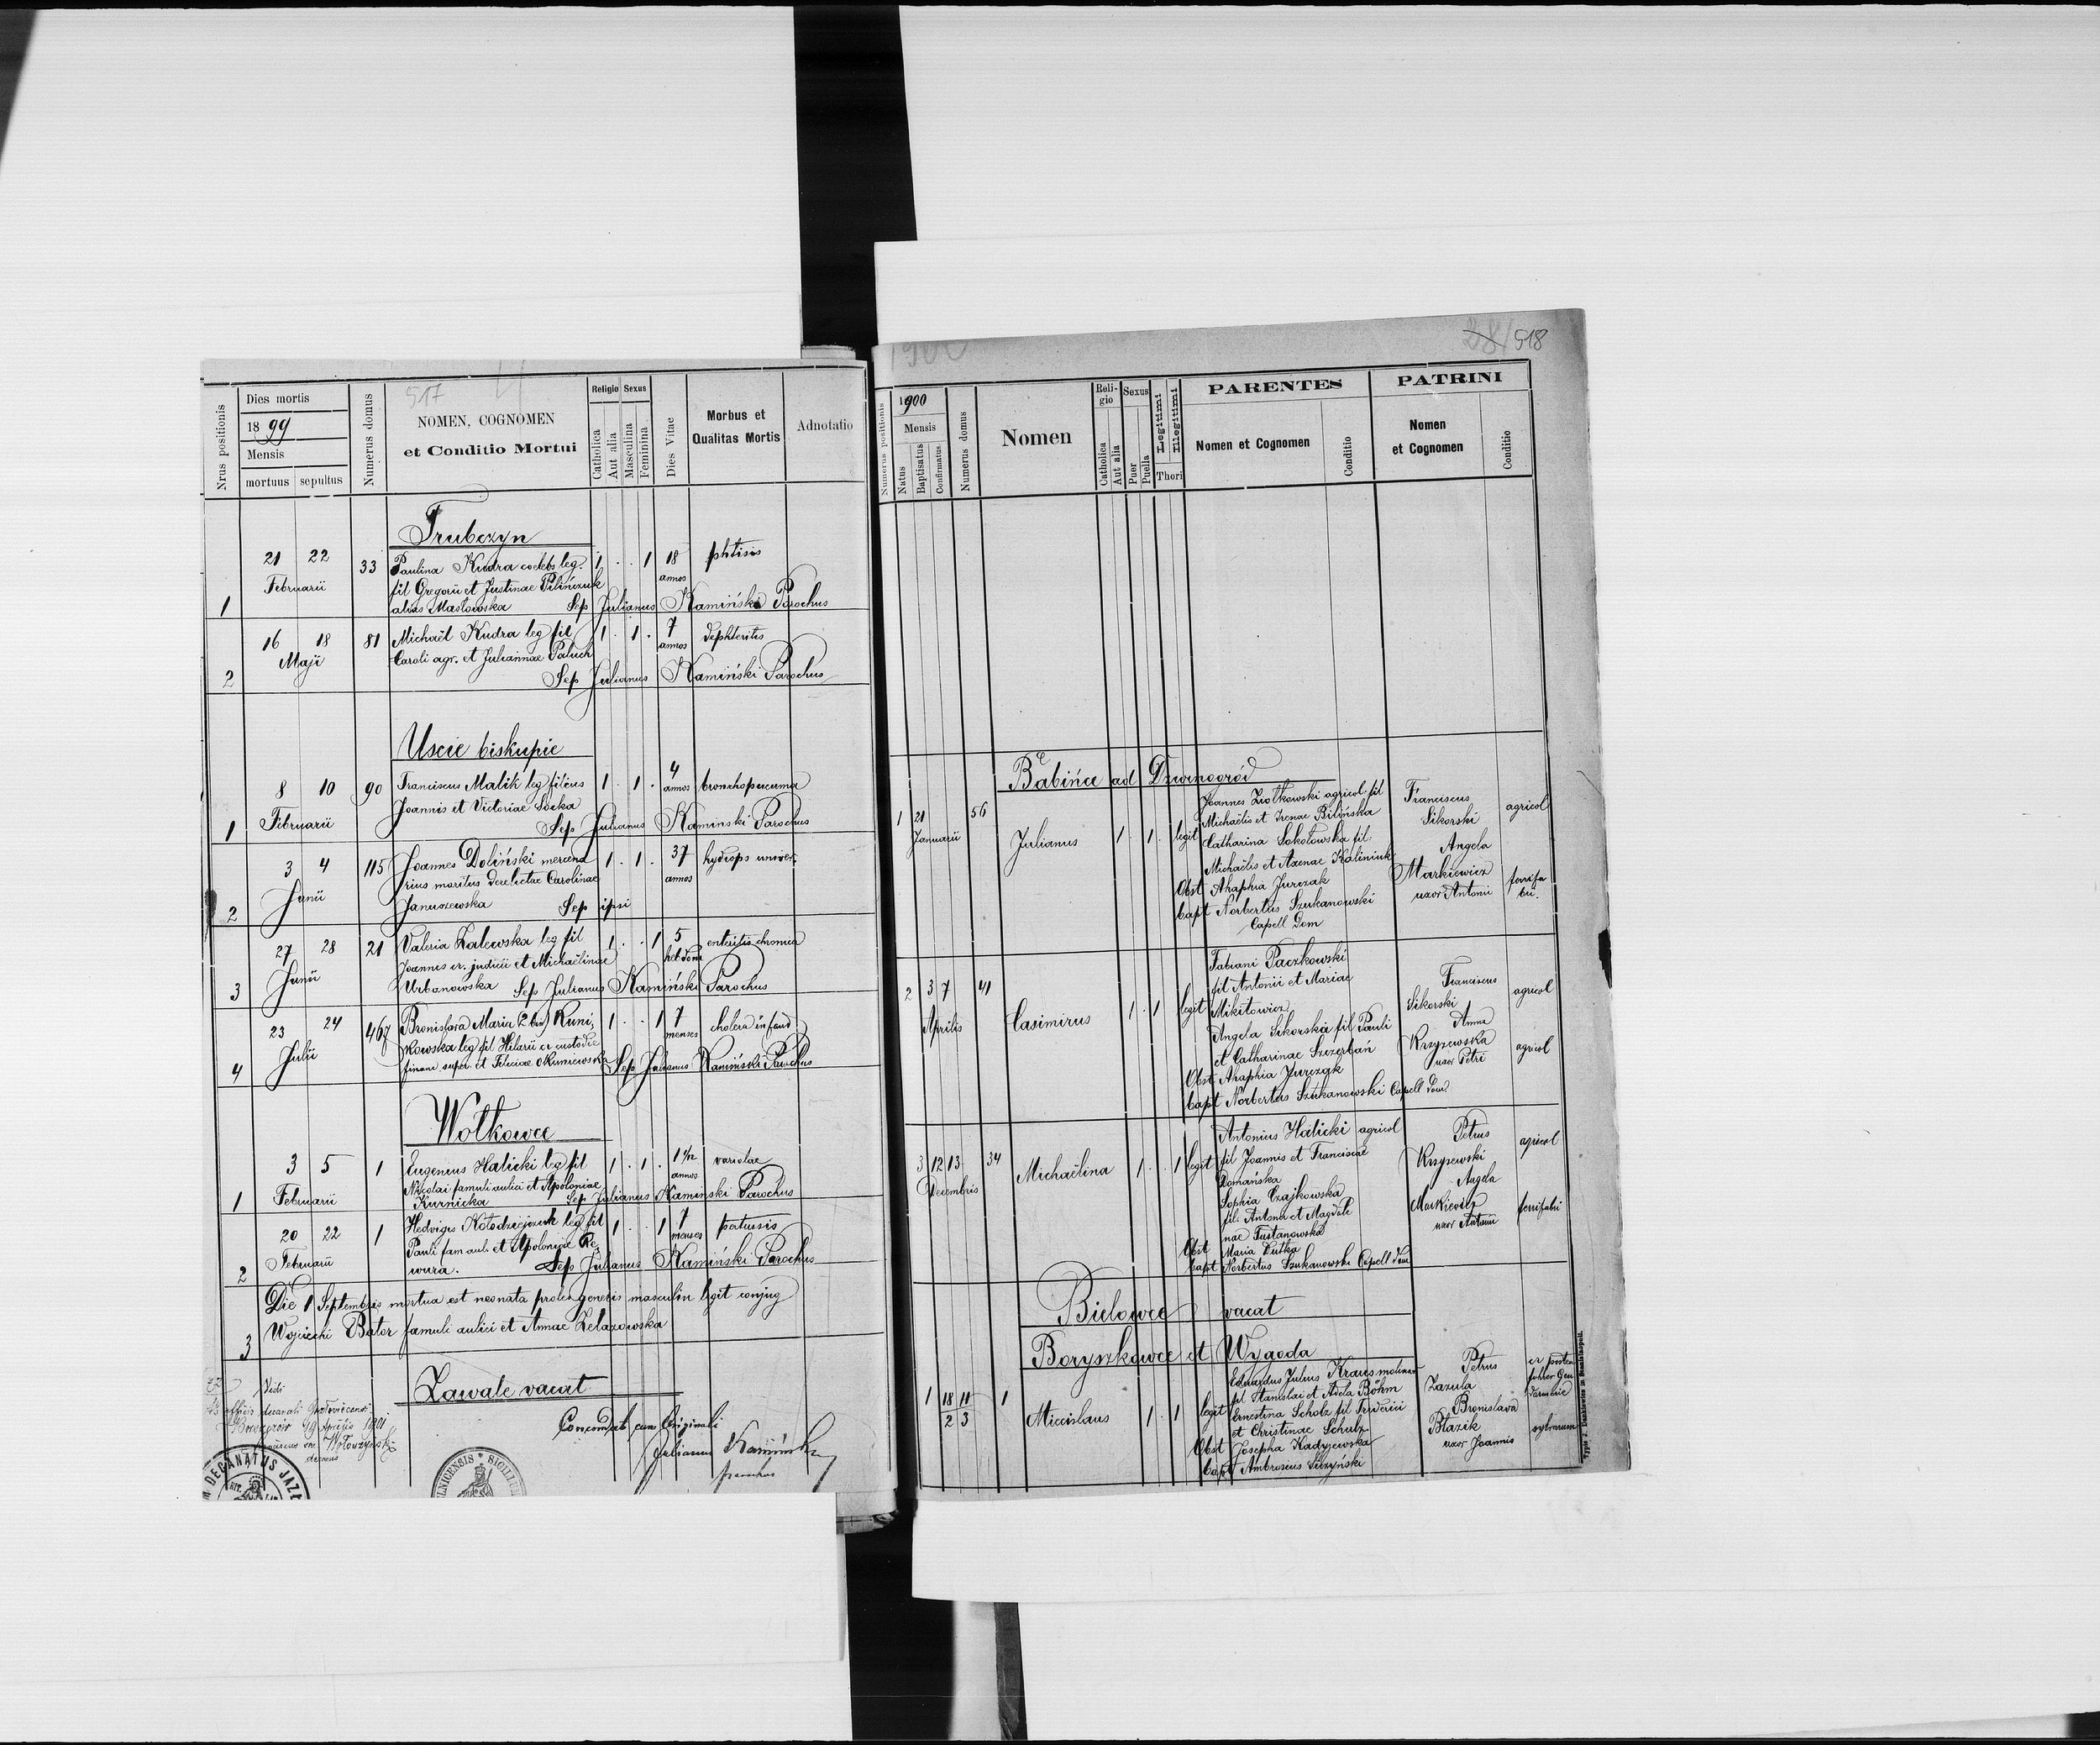 517
Nrus positionis
Dies mortis
1899
Mensis
mortuus sepultus
Numerus domus
NOMEN, COGNOMEN
et Conditio Mortui
Religio Sexus
Catholica
Aut alia
Masculina
Feminina
Dies Vitae
Morbus et
Qualitas Mortis
Adnotatio
Trubczyn
1 21 22 Februarii 33 Paulina Kudra coelebs leg. 1 . . 1 18 annos phtisis
fil Gregorii et Justinae Pilińczuk
alias Masłowska Sep Julianus Kamiński Parochus
2 16 18 Maji 81 Michaël Kudra leg fil 1 . 1 . 7 annos dephteritis
Caroli agr. et Juliannae Paluch
Sep Julianus Kamiński Parochus
Uscie biskupie
1 8 10 Februarii 90 Franciscus Malik leg filius 1 . 1 . 4 annos
Joannis et Victoriae Socka
Sep Julianus Kaminski Parochus
2 3 4 Junii 115 Joannes Doliński mercena 1 . 1 . 37 annos hydrops univer.
rius maritus derelictae Carolinae
Januszewska Sep ipsi
3 27 28 Junii 21 Valeria Zalewska leg fil 1 . . 1 5 enteritis chronica
Joannis er. judicii et Michaëlinae
Urbanowska Sep Julianus Kamiński Parochus
4 23 24 Julii 467 Bronislava Maria (2 bin) Kuni, 1 . . 1 7 menses cholera infant
kowska leg fil Hilarii cr custodie
financ super. et Feliciae Sep Julianus Kamiński Parochus
Wołkowce
1 3 5 Februarii 1 Eugenius Halicki leg fil 1 . 1 . 1 annos variolae
Nicolai famuli aulici et Apoloniae
Kurnicka Sep Julianus Kaminski Parochus
2 20 22 Februarii 1 Hedvigis Kołodziejczuk leg fil 1 . . 1 7 menses pertussis
Pauli fam aul. et Apoloniae Re,
wura. Sep Julianus Kamiński Parochus
3 Die 1 Septembris mortua est neonata proles generis masculin legit conjug
Wojciechi Bator famuli aulici et Annae Żelazowska
Zawale vacat
Vidi
officio decanali
19 Aprilis 1901
Wołoszyński
decanus
Concordat cum Originali
Julianus Kamiński
parochus
DECANATUS JAZŁ
SIGILLUM
1900
28/518
Numerus positionis
1900
Mensis
Natus
Baptisatus
Confirmatus
Numerus domus
Nomen
Religio
Catholica
Aut alia
Sexus
Puer
Puella
Legitimi
Illegitimi
Thori
PARENTES
Nomen et Cognomen
Conditio
PATRINI
Nomen
et Cognomen
Conditio
Babińce ad Dzwinogród
1 21 Januarii 56 Julianus 1 . 1 . legit
Joannes Ziołkowski agricol. fil
Michaëlis et Irenae Bilińska
Catharina Sokołowska fil.
Michaëlis et Axenae Kaliniuk
Obst Ahaphia Jurczak
bapt Norbertus Szukanowski
Capell Dom
Franciscus
Sikorski agricol
Angela
Markiewicz
uxor Antonii ferrifa
bri.
2 3 7 Aprilis 41 Casimirus 1 . 1 legit
Fabiani Paczkowski
fil Antonii et Mariae
Mikitowicz
Angela Sikorska fil Pauli
et Catharinae Szczerbań
Obst Ahaphia Jurczak
bapt Norbertus Szukanowski Capell dom
Franciscus
Sikorski agricol
Anna
Krzyzewska
uxor Petri agricol
3 12 13 Decembris 34 Michaëlina 1 . . 1 legit
Antonius Halicki agricol
fil Joannis et Franciscae
Domańska
Sophia Czajkowska
fil. Antonii et Magdale
nae Tustanowska
Obst Maria Dutka
bapt Norbertus Szukanowski Capell dom
Petrus
Krzyzewski agricol
Angela
Markiewicz
uxor Antonii ferrifabri
Bielowce vacat
Boryszkowce et Wygoda
1 18 11 1 Miecislaus 1 . 1 legit
2 3
Eduardus Julius Kraus molinar
fil. Stanislai et Böhm
Ernestina Scholz fil Friderici
et Christinae Schulz
Obst Josepha Kadyjewska
bapt Ambrosius
Petrus
Zazula
Bronislava
Błazik
uxor Joannis
Typis J. Dankiewicz in Stanislaopoli.